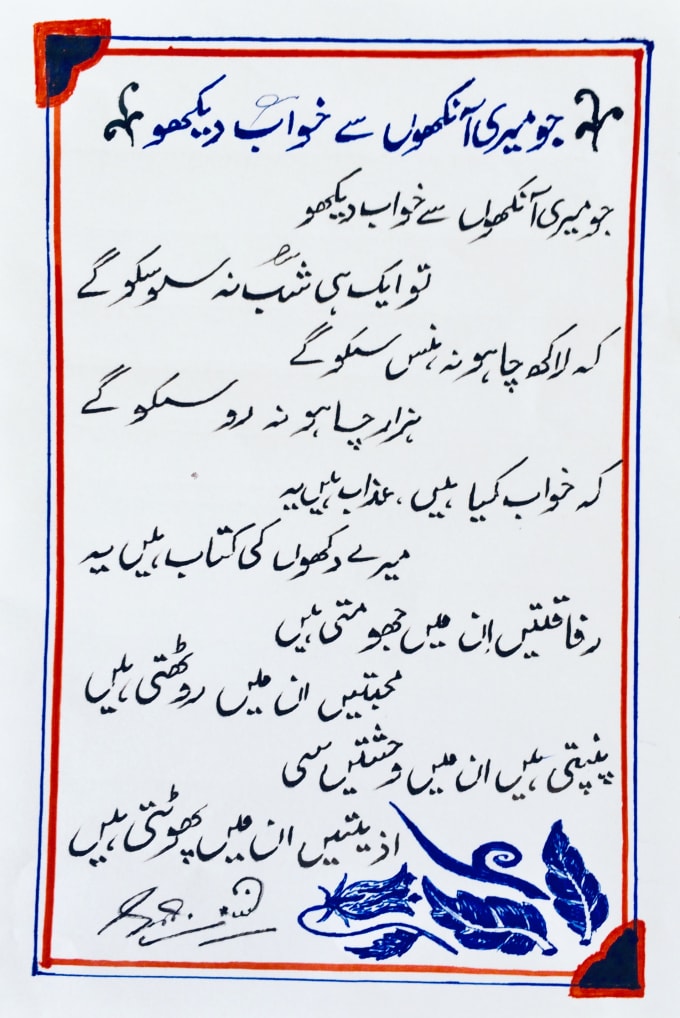 جو میری آنکھوں سے خواب دیکھو
جو میری آنکھوں سے خواب دیکھو
تو ایک ہی شب نہ سو سکو گے
کہ لاکھ چاہو نہ ہنس سکو گے
ہزار چاہو نہ رو سکو گے
کہ خواب کیا ہیں، عذاب ہیں یہ
میرے دکھوں کی کتاب ہیں یہ
رفاقتیں اِن میں جھومتی ہیں
محبتیں ان میں روٹھتی ہیں
پنپتی ہیں ان میں وحشتیں سی
اذیتیں ان میں پھوٹتی ہیں